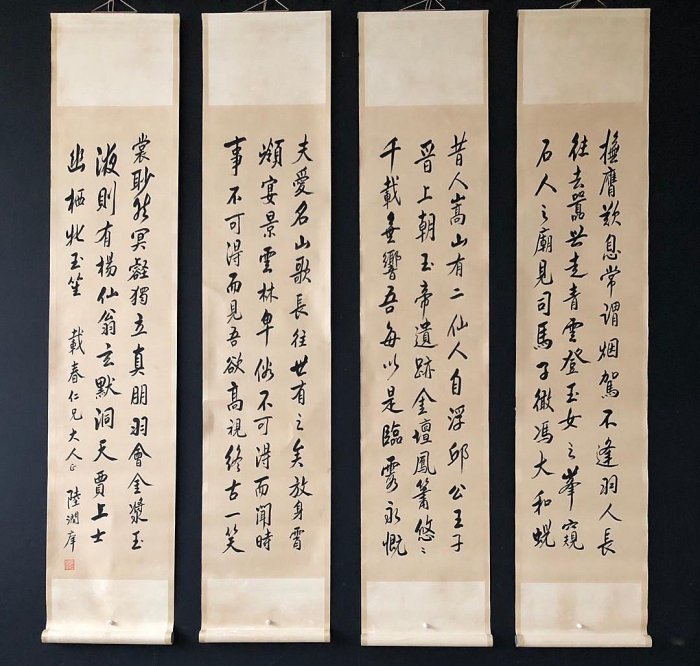 夫愛名山歌長往世有之矣放身霄
嶺宴景雲林卑俗不可得而聞時
事不可得而見吾欲高視終古一笑
昔人嵩山有二仙人自浮邱公王子
晉上朝玉帝遺跡金壇鳳簫悠〻
千載無響吾每以是臨霞永慨
撫膺歎息常謂烟駕不逢羽人長
往去囂世走青雲登玉女之峯窺
石人之廟見司馬子微馮大和蜺
裳眇然冥壑獨立真朋羽會金漿玉
液則有楊仙翁玄默洞天賈上士
幽栖牝玉笙
載春仁兄大人正
陸潤庠